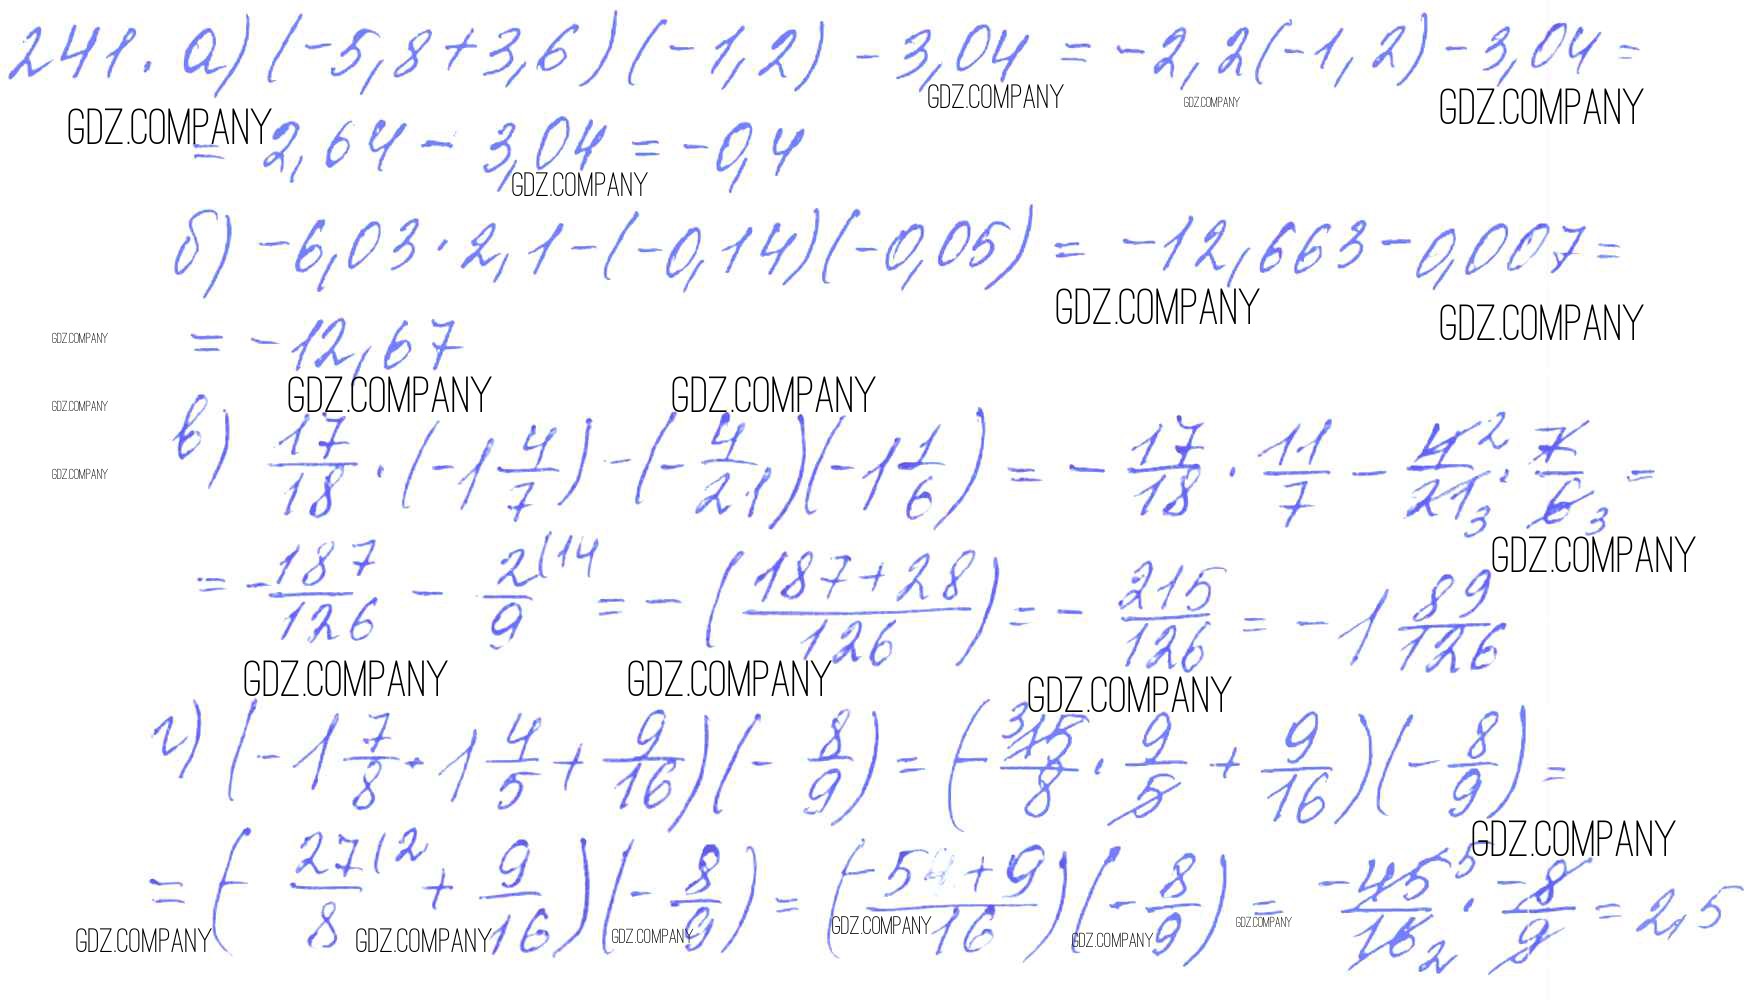 241. а) (-5,8+3,6)(-1,2) - 3,04 = -2,2(-1,2) - 3,04 =
GDZ.COMPANY GDZ.COMPANY GDZ.COMPANY GDZ.COMPANY
= 2,64 - 3,04 = -0,4
GDZ.COMPANY
б) -6,03·2,1-(-0,14)(-0,05) = -12,663-0,007=
GDZ.COMPANY GDZ.COMPANY
GDZ.COMPANY = -12,67
GDZ.COMPANY GDZ.COMPANY GDZ.COMPANY
в) 17/18 · (-1 4/7) - (-4/21)(-1 1/6) = - 17/18 · 11/7 - 4²/21₃ · 7/6₃ =
GDZ.COMPANY GDZ.COMPANY
= -187/126 - 2(14/9 = -(187+28/126) = - 215/126 = -1 89/126
GDZ.COMPANY GDZ.COMPANY GDZ.COMPANY
г) (-1 7/8 · 1 4/5 + 9/16)(- 8/9) = (- ³15/8 · 9/5 + 9/16)(- 8/9) =
GDZ.COMPANY
= (- 27(2/8 + 9/16)(- 8/9) = (-54+9/16)(- 8/9) = -45⁵/16₂ · -8/9 = 2,5
GDZ.COMPANY GDZ.COMPANY GDZ.COMPANY GDZ.COMPANY GDZ.COMPANY GDZ.COMPANY